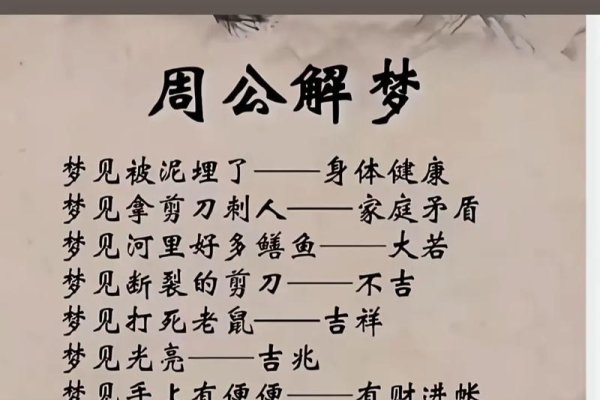 周公解梦
梦见被泥埋了——身体健康
梦见拿剪刀刺人——家庭矛盾
梦见河里好多鳝鱼——大若
梦见断裂的剪刀——不吉
梦见打死老鼠——吉祥
梦见光亮——吉兆
梦见手上有便便——有财进帐